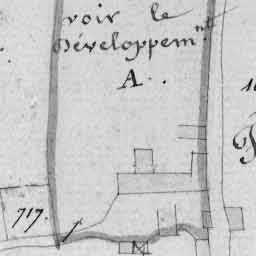 voir le
Développem.nt
A.
717.